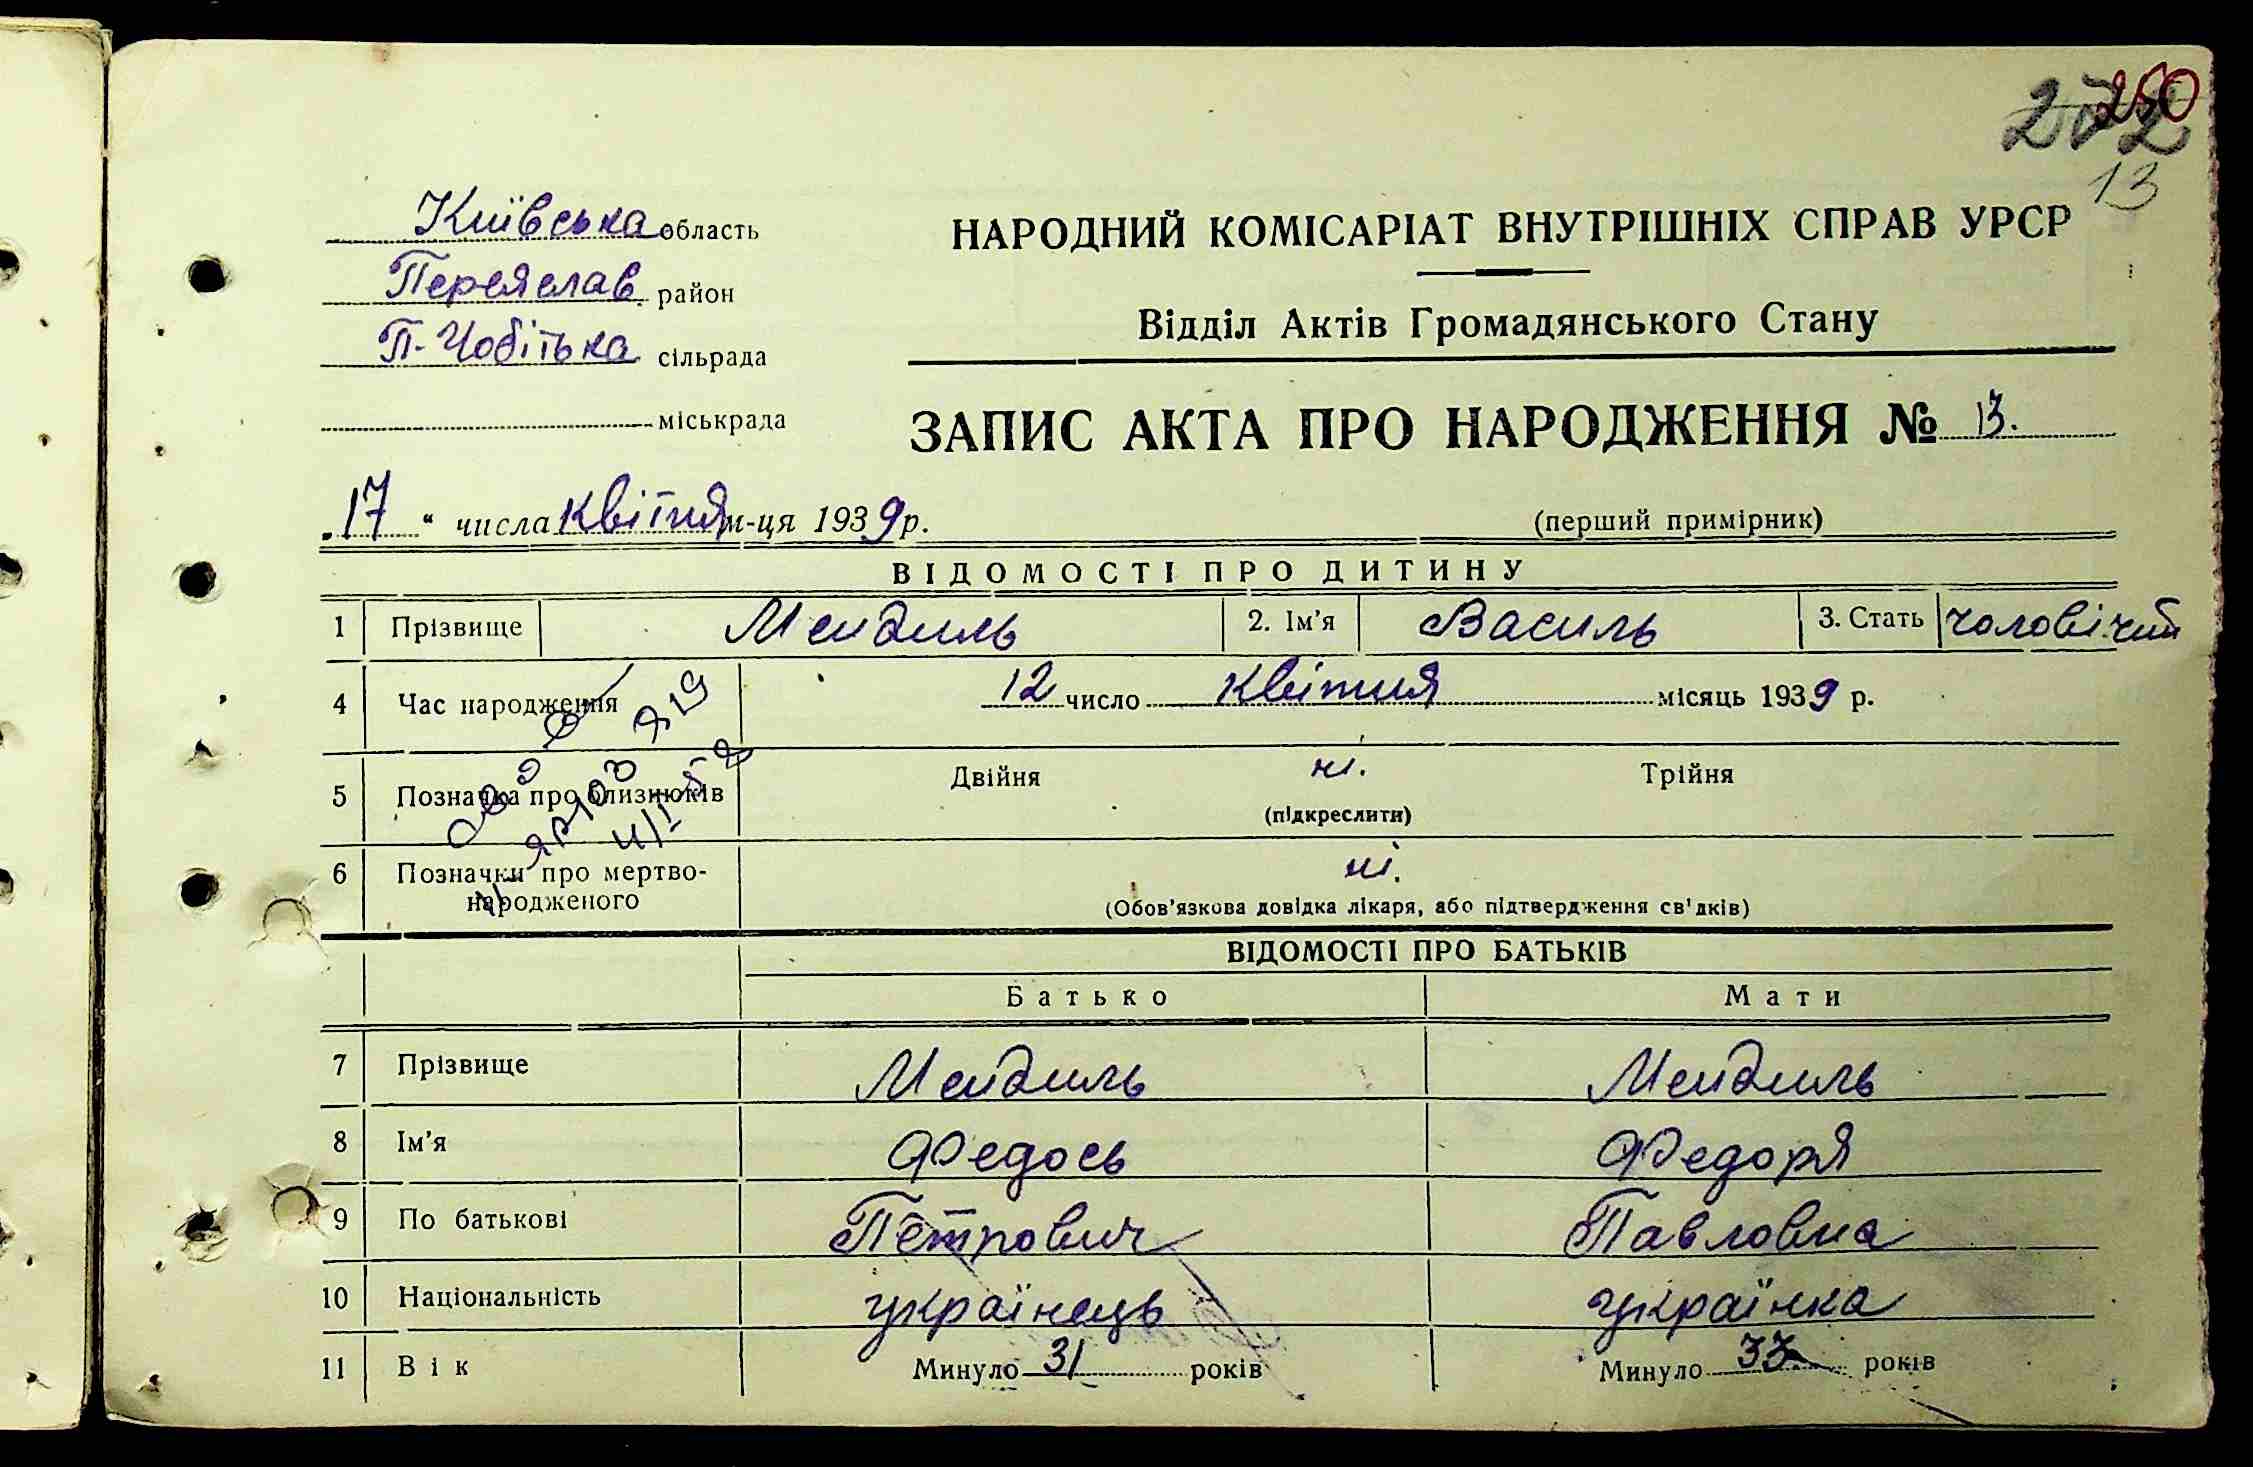 250
272
13
Київська область
Переяслав район
П-Чобітька сільрада
міськрада
НАРОДНИЙ КОМІСАРІАТ ВНУТРІШНІХ СПРАВ УРСР
Відділ Актів Громадянського Стану
ЗАПИС АКТА ПРО НАРОДЖЕННЯ № 13.
„17" числа квітня м-ця 1939 р.
(перший примірник)
ВІДОМОСТІ ПРО ДИТИНУ
1 Прізвище Мендиль 2. Ім'я Василь 3. Стать чоловічий
4 Час народження 12 число квітня місяць 1939 р.
5 Позначка про близнюків Двійня ні. Трійня
(підкреслити)
6 Позначки про мертво- ні.
народженого (Обов'язкова довідка лікаря, або підтвердження св'дків)
ВІДОМОСТІ ПРО БАТЬКІВ
Батько Мати
7 Прізвище Мендиль Мендиль
8 Ім'я Федось Федоря
9 По батькові Петрович Павловна
10 Національність українець українка
11 Вік Минуло 31 років Минуло 33 років